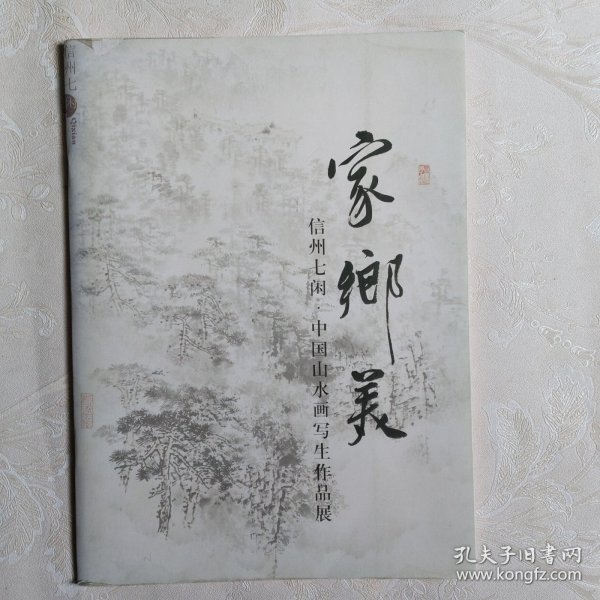 家鄉美
信州七闲·中国山水画写生作品展
信州七
Qixian
孔夫子旧书网
www.kongfz.com